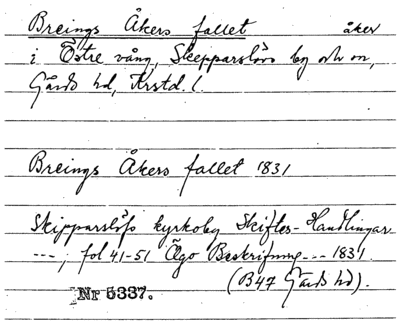 Breings Åkers fallet åker
i Östre vång, Skepparslövs by och sn,
Gärds hd, Krstd. l.
Breings Åkers fallet 1831
Skipparslöfs kyrkoby Skiftes-Handlingar
---, fol 41-51 Ägo Beskrifning --- 1831
(B47 Gärds hd).
Nr 5337.